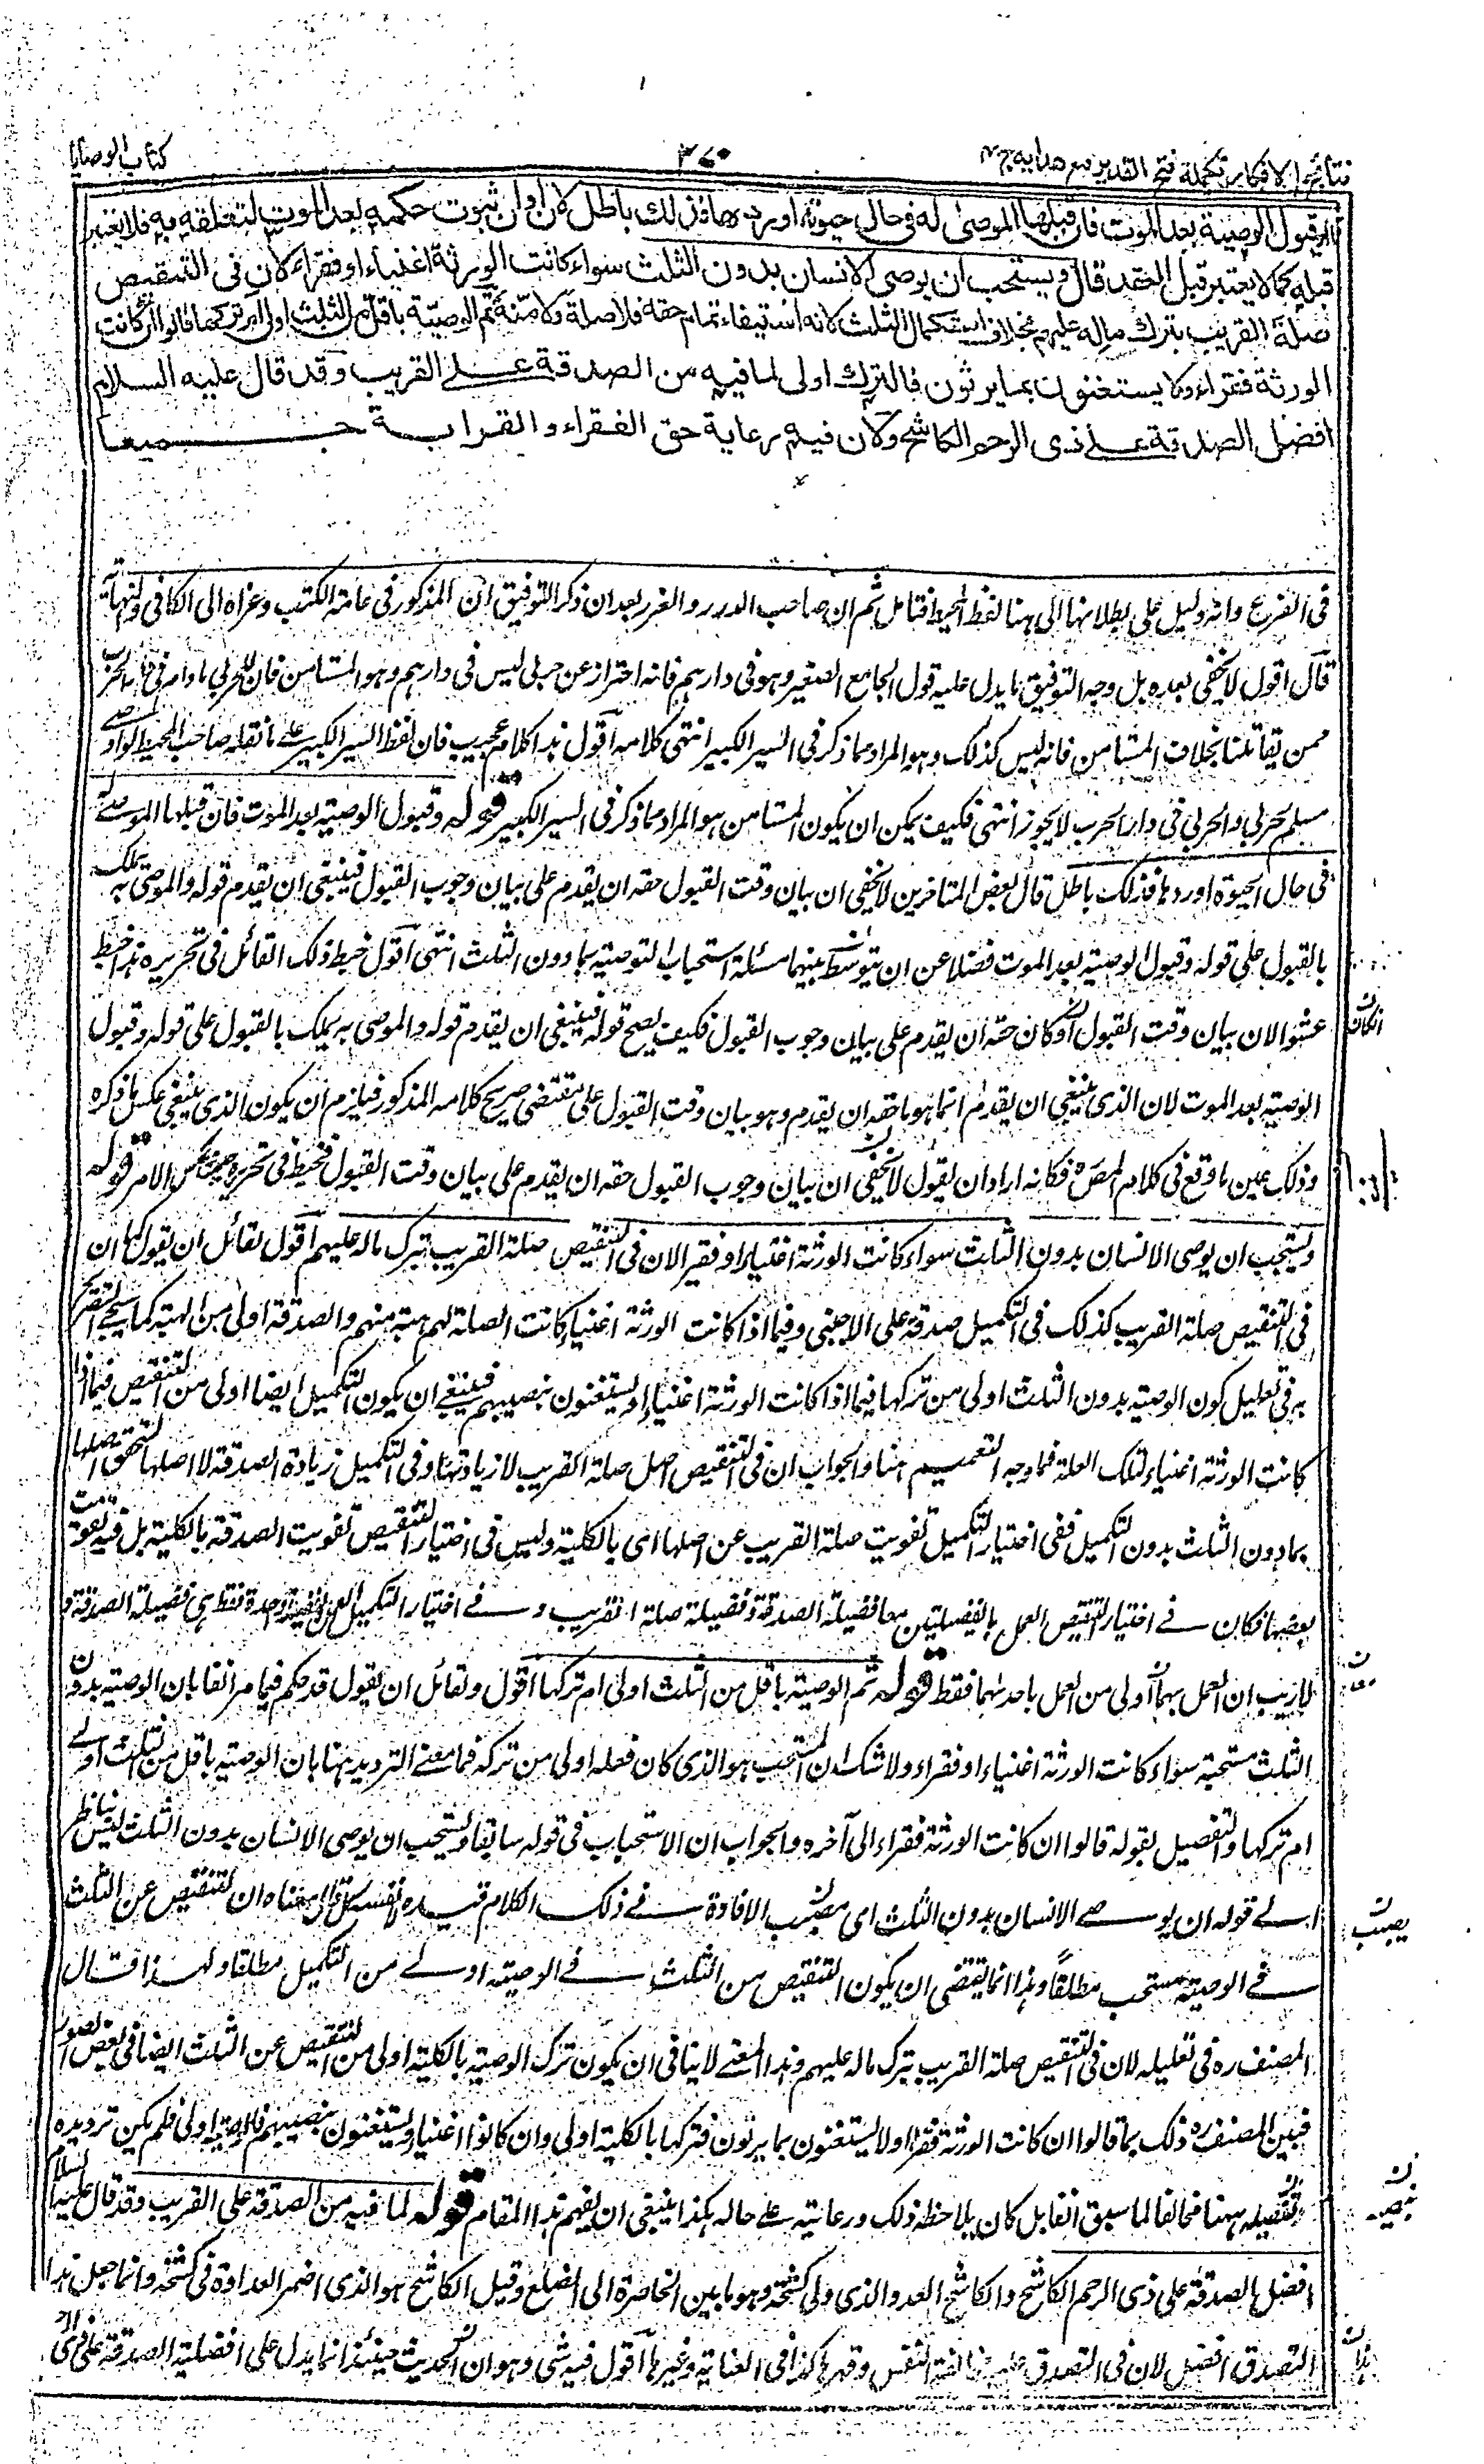 نتائج الافكار تكملة فتح القدير مع هدايه ج ٤
٣٧٠
كتاب الوصايا
قال وقبول الوصية بعد الموت فان قبلها الموصىٰ له فى حال حيوته او ردها فذلك باطل لان اوان ثبوت حكمه بعد الموت لتعلقه به فلا يعتبر
قبله كما لا يعتبر قبل العقد قال ويستحب ان يوصى الانسان بدون الثلث سواء كانت الورثة اغنياء او فقراء لان فى التنقيص
صلة القريب بترك ماله عليهم بخلاف استكمال الثلث لانه استيفاء تمام حقه فلا صلة ولا منّة ثم الوصيّة باقل من الثلث اولى ام تركها قالوا ان كانت
الورثة فقراء ولا يستغنون بما يرثون فالترك اولى لما فيه من الصدقة على القريب وقد قال عليه السلام
افضل الصدقة على ذى الرحم الكاشح ولان فيه رعاية حق الفقراء والقرابة جميعا
فى التفريع وانه دليل على بطلانها الى هنا لفظ المحيط فتامل ثم ان صاحب الدرر والغرر بعد ان ذكر التوفيق ان المذكور فى عامة الكتب وعزاه الى الكافى والنهاية
قال اقول لا يخفى بعده بل وجه التوفيق ما يدل عليه قول الجامع الصغير وهو فى دارهم فانه احتراز عن حربى ليس فى دارهم وهو المستامن فان الحربى ما دام فى دار الحرب
ممن يقاتلنا بخلاف المستامن فانه ليس كذلك وهو المراد مما ذكر فى السير الكبير انتهى كلامه اقول هذا كلام عجيب فان لفظ السير الكبير على ما نقله صاحب المحيط لو اوصى
مسلم لحربى والحربى فى دار الحرب لا يجوز انتهى فكيف يمكن ان يكون المستامن هو المراد مما ذكر فى السير الكبير قوله وقبول الوصية بعد الموت فان قبلها الموصى له
فى حال الحيوة او ردها فذلك باطل قال بعض المتاخرين لا يخفى ان بيان وقت القبول حقه ان يقدم على بيان وجوب القبول فينبغى ان يقدم قوله والموصى به يملك
بالقبول على قوله وقبول الوصية بعد الموت فضلا عن ان يتوسط بينهما مسئلة استحباب التوصية بما دون الثلث انتهى اقول خبط ذلك القائل فى تحريره هذا خبط
عشوا لان بيان وقت القبول لو كان حقه ان يقدم على بيان وجوب القبول فكيف يصح قوله فينبغى ان يقدم قوله والموصى به يملك بالقبول على قوله وقبول
الوصية بعد الموت لان الذى ينبغى ان يقدم انما هو ما حقه ان يقدم وهو بيان وقت القبول على مقتضى صريح كلامه المذكور فيلزم ان يكون الذى ينبغى عكس ما ذكره
وذلك عين ما وقع فى كلام المصنف فكانه اراد ان يقول لا يخفى ان بيان وجوب القبول حقه ان يقدم على بيان وقت القبول فخبط فى تحريره حيث عكس الامر قوله
ويستحب ان يوصى الانسان بدون الثلث سواء كانت الورثة اغنياء او فقراء لان فى التنقيص صلة القريب بترك ماله عليهم اقول لقائل ان يقول كما ان
فى التنقيص صلة القريب كذلك فى التكميل صدقة على الاجنبى وفيما اذا كانت الورثة اغنياء كانت الصلة لهم هبة منهم والصدقة اولى من الهبة كما سيجئ التصريح
به فى تعليل كون الوصية بدون الثلث اولى من تركها فيما اذا كانت الورثة اغنياء او يستغنون بنصيبهم فينبغى ان يكون التكميل ايضا اولى من التنقيص فيما اذا
كانت الورثة اغنياء لتلك العلة فما وجه التعميم هنا والجواب ان فى التنقيص اصل صلة القريب لا زيادتها وفى التكميل زيادة الصدقة لا اصلها لتحقق اصلها
بما دون الثلث بدون التكميل ففى اختيار التكميل تفويت صلة القريب عن اصلها اى بالكلية وليس فى اختيار التنقيص تفويت الصدقة بالكلية بل فيه تفويت
بعضها فكان فى اختيار التنقيص العمل بالفضيلتين معا فضيلة الصدقة وفضيلة صلة القريب وفى اختيار التكميل العمل بفضيلة واحدة فقط هى فضيلة الصدقة و
لا ريب ان العمل بهما اولى من العمل باحدهما فقط قوله ثم الوصية باقل من الثلث اولى ام تركها اقول ولقائل ان يقول قد حكم فيما مر انفا بان الوصية بدون
الثلث مستحبة سواء كانت الورثة اغنياء او فقراء ولا شك ان المستحب هو الذى كان فعله اولى من تركه فما معنى الترديد ههنا بان الوصية باقل من الثلث اولى
ام تركها والتفصيل بقوله قالوا ان كانت الورثة فقراء الى آخره والجواب ان الاستحباب فى قوله سابقا ويستحب ان يوصى الانسان بدون الثلث ليس بناظر
الى قوله ان يوصى الانسان بدون الثلث اى مصب الافادة فى ذلك الكلام قيده معناه ان التنقيص عن الثلث
فى الوصية مستحب مطلقاً وهذا انما يقتضى ان يكون التنقيص من الثلث فى الوصية اولى من التكميل مطلقا ولهذا قال
المصنف ره فى تعليله لان فى التنقيص صلة القريب بترك ماله عليهم وهذا المعنى لا ينافى ان يكون ترك الوصية بالكلية اولى من التنقيص عن الثلث ايضا فى بعض الصور
فبين المصنف ره ذلك بما قالوا ان كانت الورثة فقراء ولا يستغنون بما يرثون فتركها بالكلية اولى وان كانوا اغنياء او يستغنون بنصيبهم فالوصية اولى فلم يكن ترديده
وتفصيله ههنا مخالفا لما سبق انفا بل كان بملاحظة ذلك ورعايته على حاله هكذا ينبغى ان يفهم هذا المقام قوله لما فيه من الصدقة على القريب وقد قال عليه السلام
افضل الصدقة على ذى الرحم الكاشح والكاشح العدو الذى ولى كشحه وهو ما بين الخاصرة الى الضلع وقيل الكاشح هو الذى اضمر العداوة فى كشحه وانما جعل هذا
التصدق افضل لان فى التصدق عليه مخالفة النفس وقهرها كذا فى العناية وغيرها اقول فيه شئ وهو ان الحديث حينئذ انما يدل على افضلية الصدقة على ذى